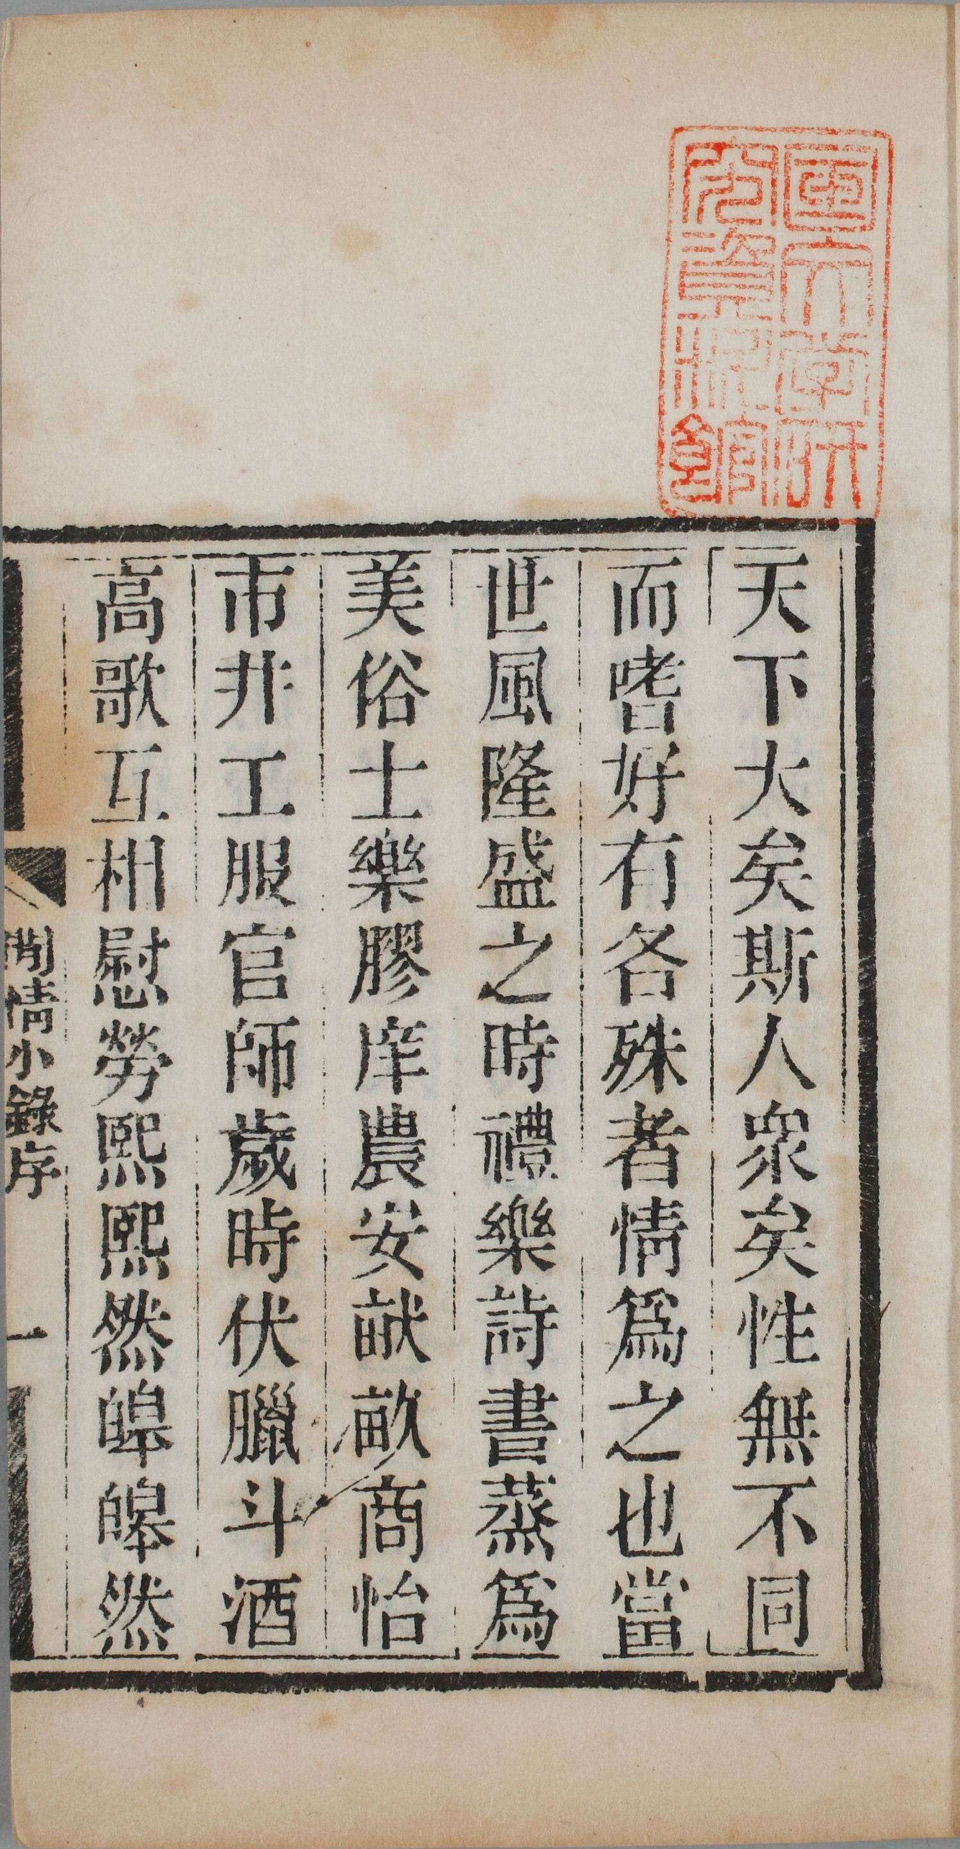 國立文學研
究資料館
天下大矣斯人衆矣性無不同
而嗜好有各殊者情爲之也當
世風隆盛之時禮樂詩書蒸爲
美俗士樂膠庠農安畎畝商怡
市井工服官師歲時伏臘斗酒
高歌互相慰勞熙熙然皥皥然
閒情小錄序
一